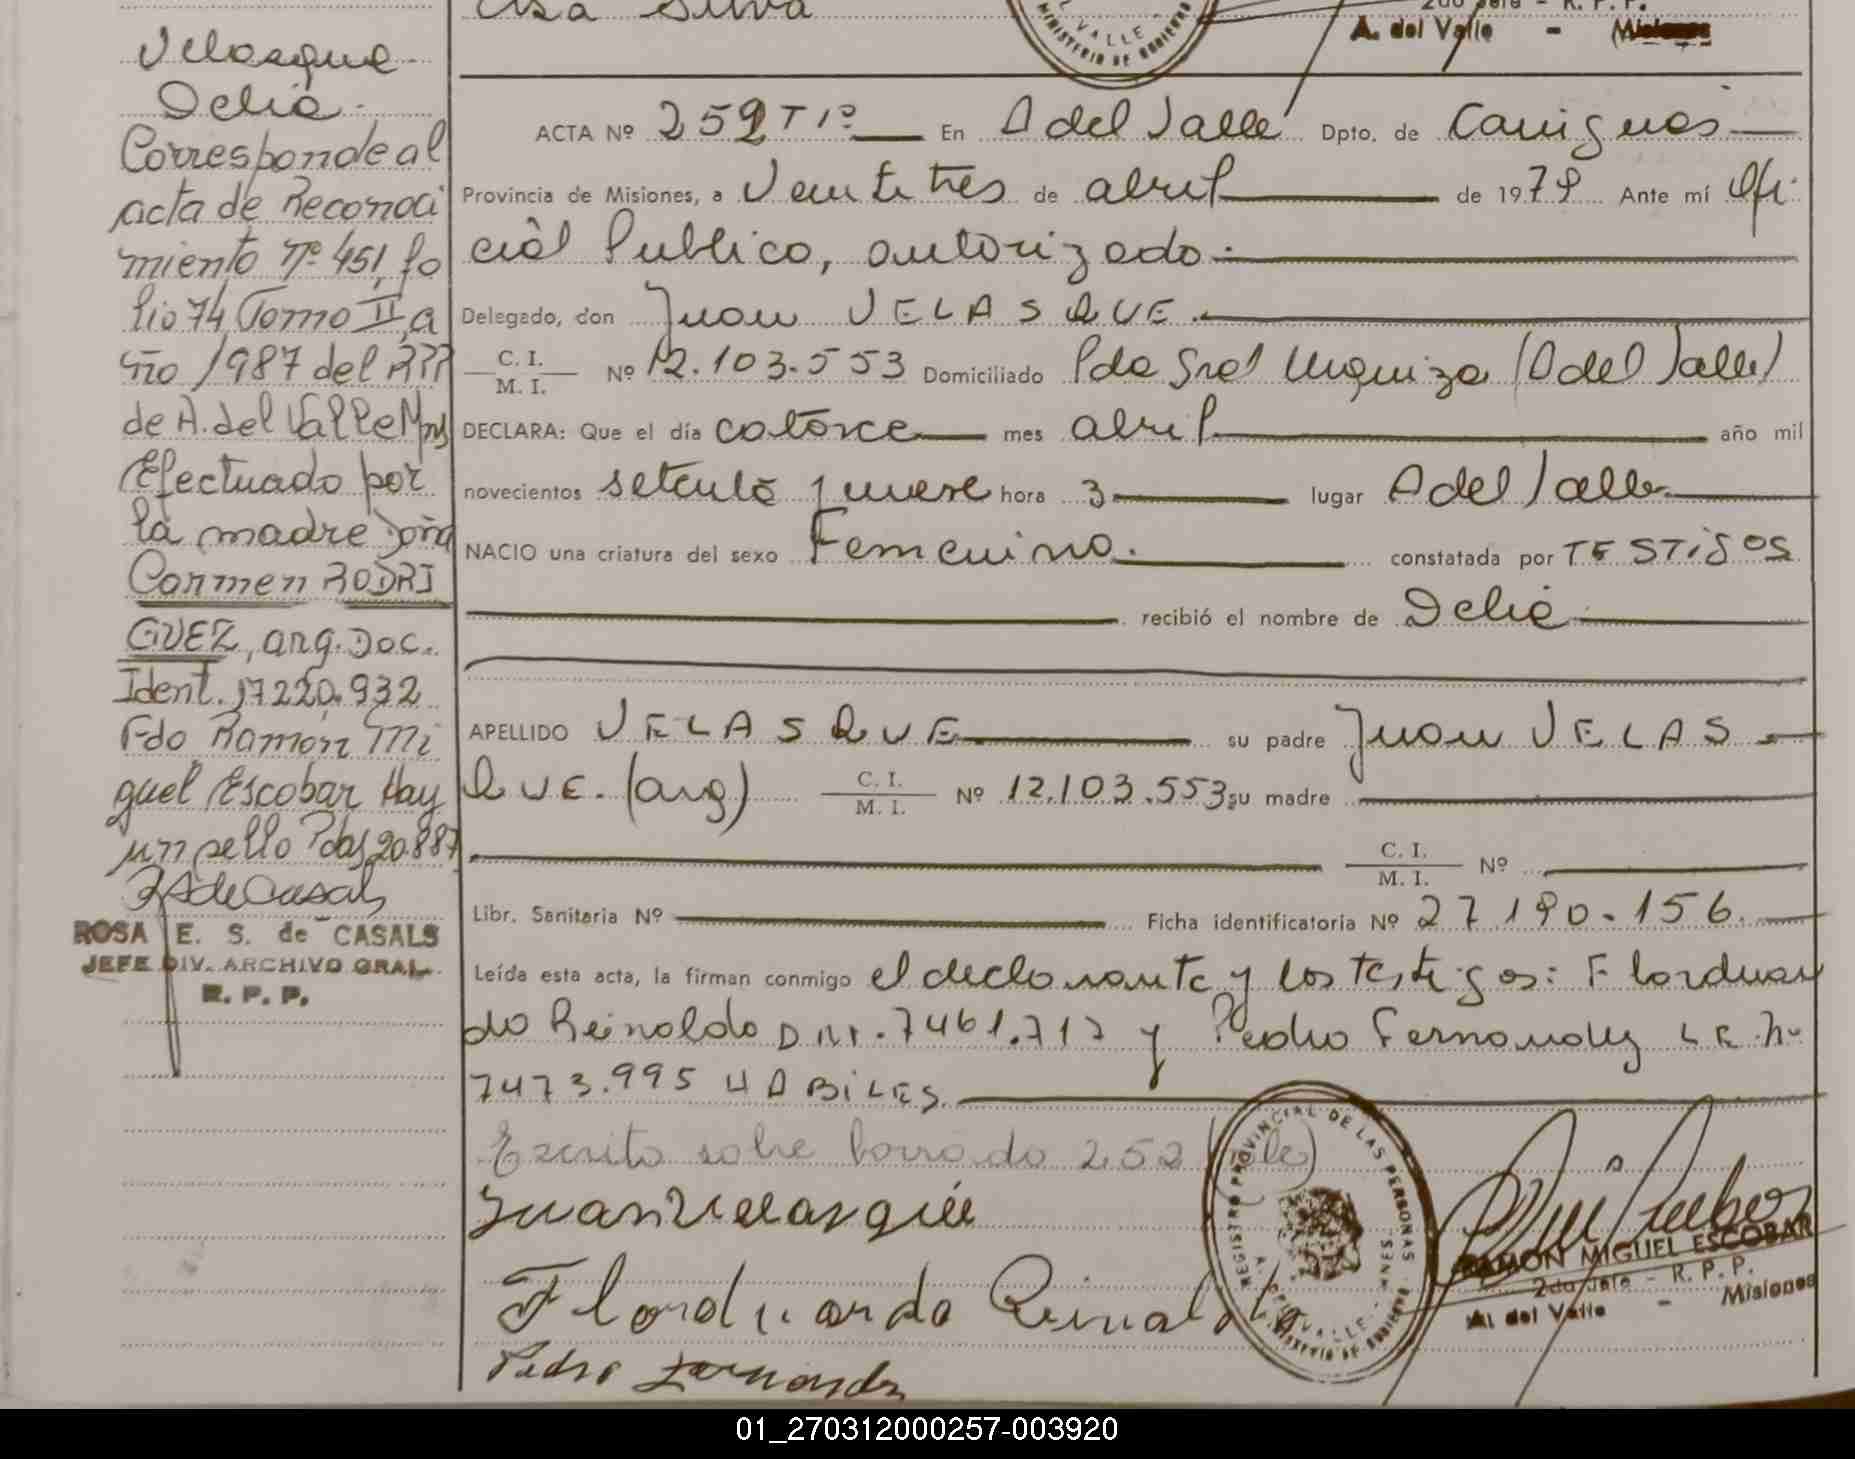 Elsa Silva
VALLE
MINISTERIO DE GOBIERNO
2do Jefe - R. P. P.
A. del Valle - Misiones
Velasque
Delia.
Corresponde al
acta de Reconoci
miento Nº 451, fo
lio 74, Tomo II, a
ño 1987 del RPP
de A. del Valle Mns
Efectuado por
la madre Doña
Carmen RODRI
GUEZ, arg. Doc.
Ident. 17.220.932
Fdo Ramón Mi
guel Escobar Hay
un sello Pdas 20.887
RSdeCasals
ROSA E. S. de CASALS
JEFE DIV. ARCHIVO GRAL.
R. P. P.
ACTA Nº 252 Tº 1º En A del Valle Dpto. de Cainguás
Provincia de Misiones, a Veintitres de abril de 1979 Ante mí Ofi
cial Publico, autorizado.
Delegado, don Juan VELASQUE.
C. I.
M. I. Nº 12.103.553 Domiciliado Pdo Gral Urquiza (A del Valle)
DECLARA: Que el día catorce mes abril año mil
novecientos setenta y nueve hora 3 lugar A del Valle
NACIO una criatura del sexo Femenino. constatada por TESTIGOS
recibió el nombre de Delia
APELLIDO VELASQUE su padre Juan VELAS
QUE. (arg) C. I.
M. I. Nº 12.103.553 su madre
C. I.
M. I. Nº
Libr. Sanitaria Nº Ficha identificatoria Nº 27.190.156.
Leída esta acta, la firman conmigo el declarante y los testigos: Florduar
do Reinoldo DNI. 7461.717 y Pedro Fernandez L E. Nº
7473.995 HABILES.
Escrito sobre borrado 252 (Vale)
Juan Velasque
Florduardo Reinoldo
Pedro Fernandez
REGISTRO PROVINCIAL DE LAS PERSONAS
A. DEL VALLE - MNES.
MINISTERIO DE GOBIERNO
RAMON MIGUEL ESCOBAR
2do Jefe - R. P. P.
A. del Valle - Misiones
01_270312000257-003920